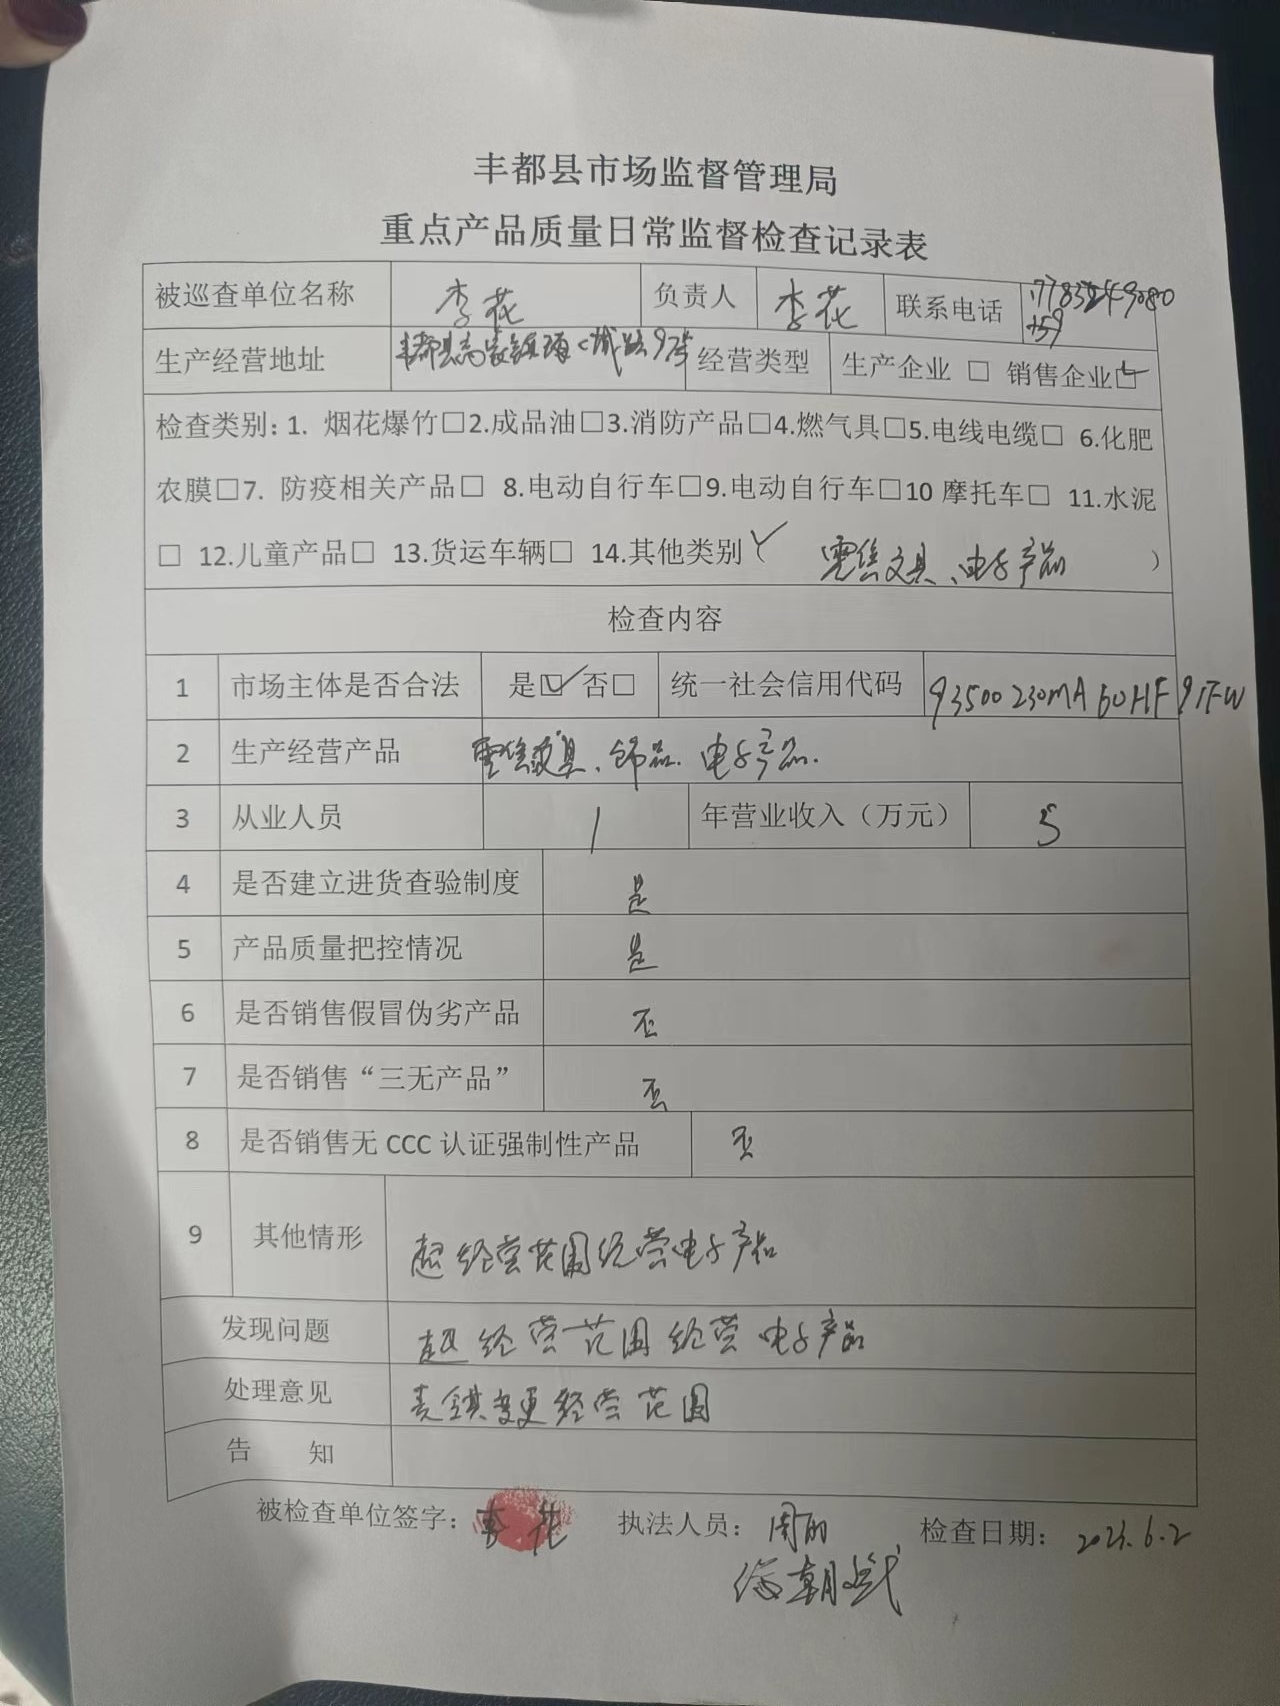 丰都县市场监督管理局
重点产品质量日常监督检查记录表
被巡查单位名称 李花 负责人 李花 联系电话
生产经营地址 丰都县高家镇 路9号 经营类型 生产企业 □ 销售企业☑
检查类别：1. 烟花爆竹□2.成品油□3.消防产品□4.燃气具□5.电线电缆□ 6.化肥
农膜□7. 防疫相关产品□ 8.电动自行车□9.电动自行车□10 摩托车□ 11.水泥
□ 12.儿童产品□ 13.货运车辆□ 14.其他类别（✓ 零售文具、电子产品 ）
检查内容
1 市场主体是否合法 是☑ 否□ 统一社会信用代码 93500230MA60HF91FW
2 生产经营产品 零售文具、饰品、电子产品.
3 从业人员 1 年营业收入（万元） 5
4 是否建立进货查验制度 是
5 产品质量把控情况 是
6 是否销售假冒伪劣产品 否
7 是否销售“三无产品” 否
8 是否销售无 CCC 认证强制性产品 否
9 其他情形 超经营范围经营电子产品
发现问题 超经营范围经营电子产品
处理意见 责令其变更经营范围
告 知
被检查单位签字：李花 执法人员： 检查日期：